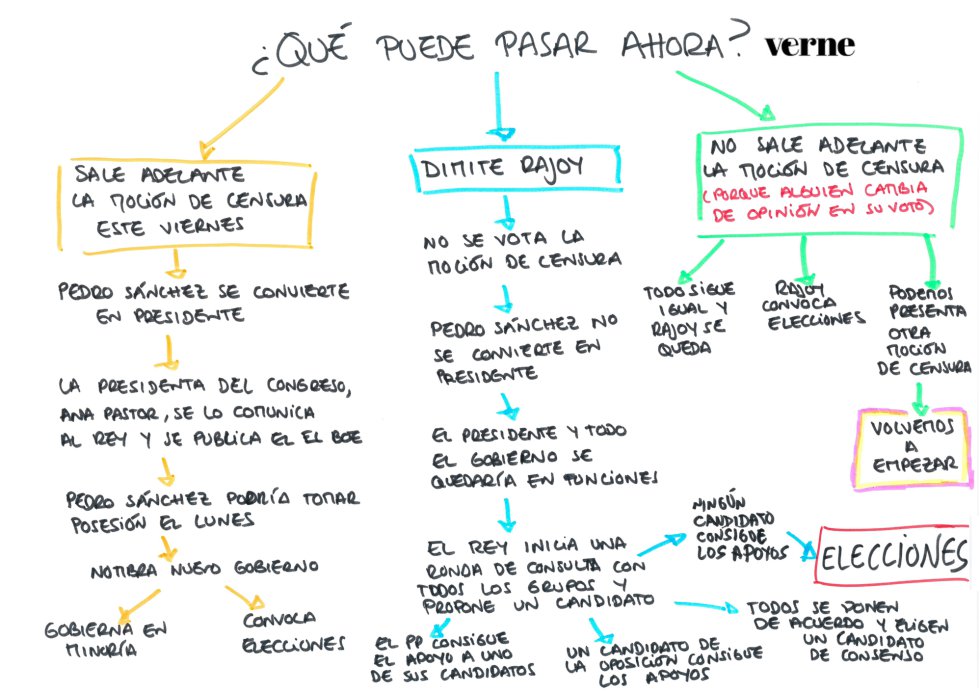 ¿QUÉ PUEDE PASAR AHORA? verne
SALE ADELANTE
LA MOCIÓN DE CENSURA
ESTE VIERNES
PEDRO SÁNCHEZ SE CONVIERTE
EN PRESIDENTE
LA PRESIDENTA DEL CONGRESO,
ANA PASTOR, SE LO COMUNICA
AL REY Y SE PUBLICA EL EL BOE
PEDRO SÁNCHEZ PODRÍA TOMAR
POSESIÓN EL LUNES
NOMBRA NUEVO GOBIERNO
GOBIERNA EN
MINORÍA
CONVOCA
ELECCIONES
DIMITE RAJOY
NO SE VOTA LA
MOCIÓN DE CENSURA
PEDRO SÁNCHEZ NO
SE CONVIERTE EN
PRESIDENTE
EL PRESIDENTE Y TODO
EL GOBIERNO SE
QUEDARÍA EN FUNCIONES
EL REY INICIA UNA
RONDA DE CONSULTA CON
TODOS LOS GRUPOS Y
PROPONE UN CANDIDATO
EL PP CONSIGUE
EL APOYO A UNO
DE SUS CANDIDATOS
UN CANDIDATO DE
LA OPOSICIÓN CONSIGUE
LOS APOYOS
TODOS SE PONEN
DE ACUERDO Y ELIGEN
UN CANDIDATO
DE CONSENSO
NINGÚN
CANDIDATO
CONSIGUE
LOS APOYOS
ELECCIONES
NO SALE ADELANTE
LA MOCIÓN DE CENSURA
(PORQUE ALGUIEN CAMBIA
DE OPINIÓN EN SU VOTO)
TODO SIGUE
IGUAL Y
RAJOY SE
QUEDA
RAJOY
CONVOCA
ELECCIONES
PODEMOS
PRESENTA
OTRA
MOCIÓN
DE CENSURA
VOLVEMOS
A
EMPEZAR